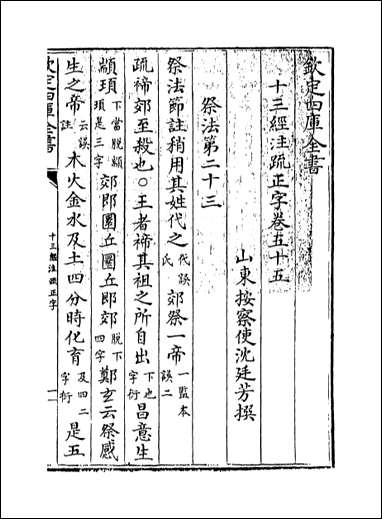 欽定四庫全書
十三經注疏正字卷五十五
山東按察使沈廷芳撰
祭法第二十三
祭法節註稍用其姓代之代誤氏郊祭一帝一監本誤二
疏禘郊至殺也○王者禘其祖之所自出下也字衍昌意生
顓頊下當脱顓頊是三字郊即圜丘圜丘即郊脱下四字鄭玄云祭感
生之帝云誤註木火金水及土四分時化育及四二字衍是五
欽定四庫全書
十三經注疏正字
一